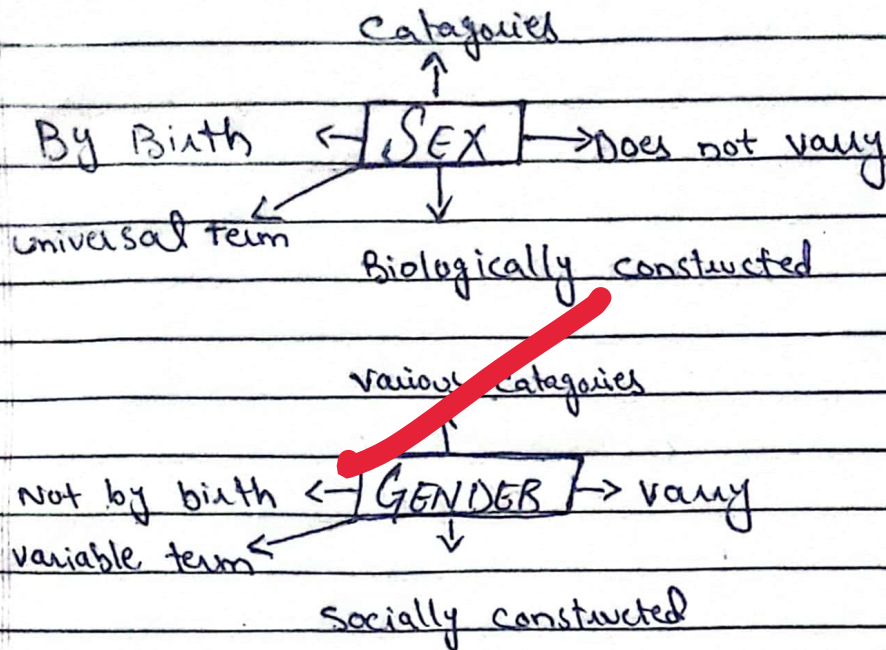 Catagories
By Birth SEX Does not varry
universal term
Biologically constructed
various catagories
Not by birth GENDER varry
variable term
Socially constructed